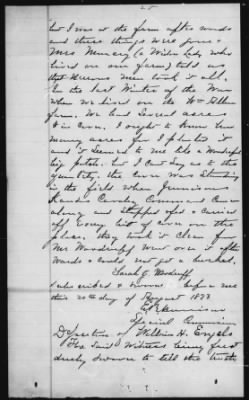 but I was at the farm after wards
and these things were gone &
Mrs (a Widow Lady who
lived on our farm) told us
that men took it all.
In the last Winter of the War
when we lived on the Wm
farm. We had Several acres
in Corn. I ought to know how
many acres for I planted it
and it seemed to me like a Wonderful
big patch. but I Can't Say as to the
quantity. the Corn was Standing
in the field when Jennisons
Kansas Cavalry Command Came
along and Stopped & carried
off Every bit of Corn on the
place. they took it Clean for
Mr Woodruff went over it after
wards & could not get a bushel.
Sarah J. Woodruff
Subscribed & Sworn before me
this 20th day of August 1873

Special Commr
Deposition of William H.
The Said Witness being first
duly Sworn to tell the truth